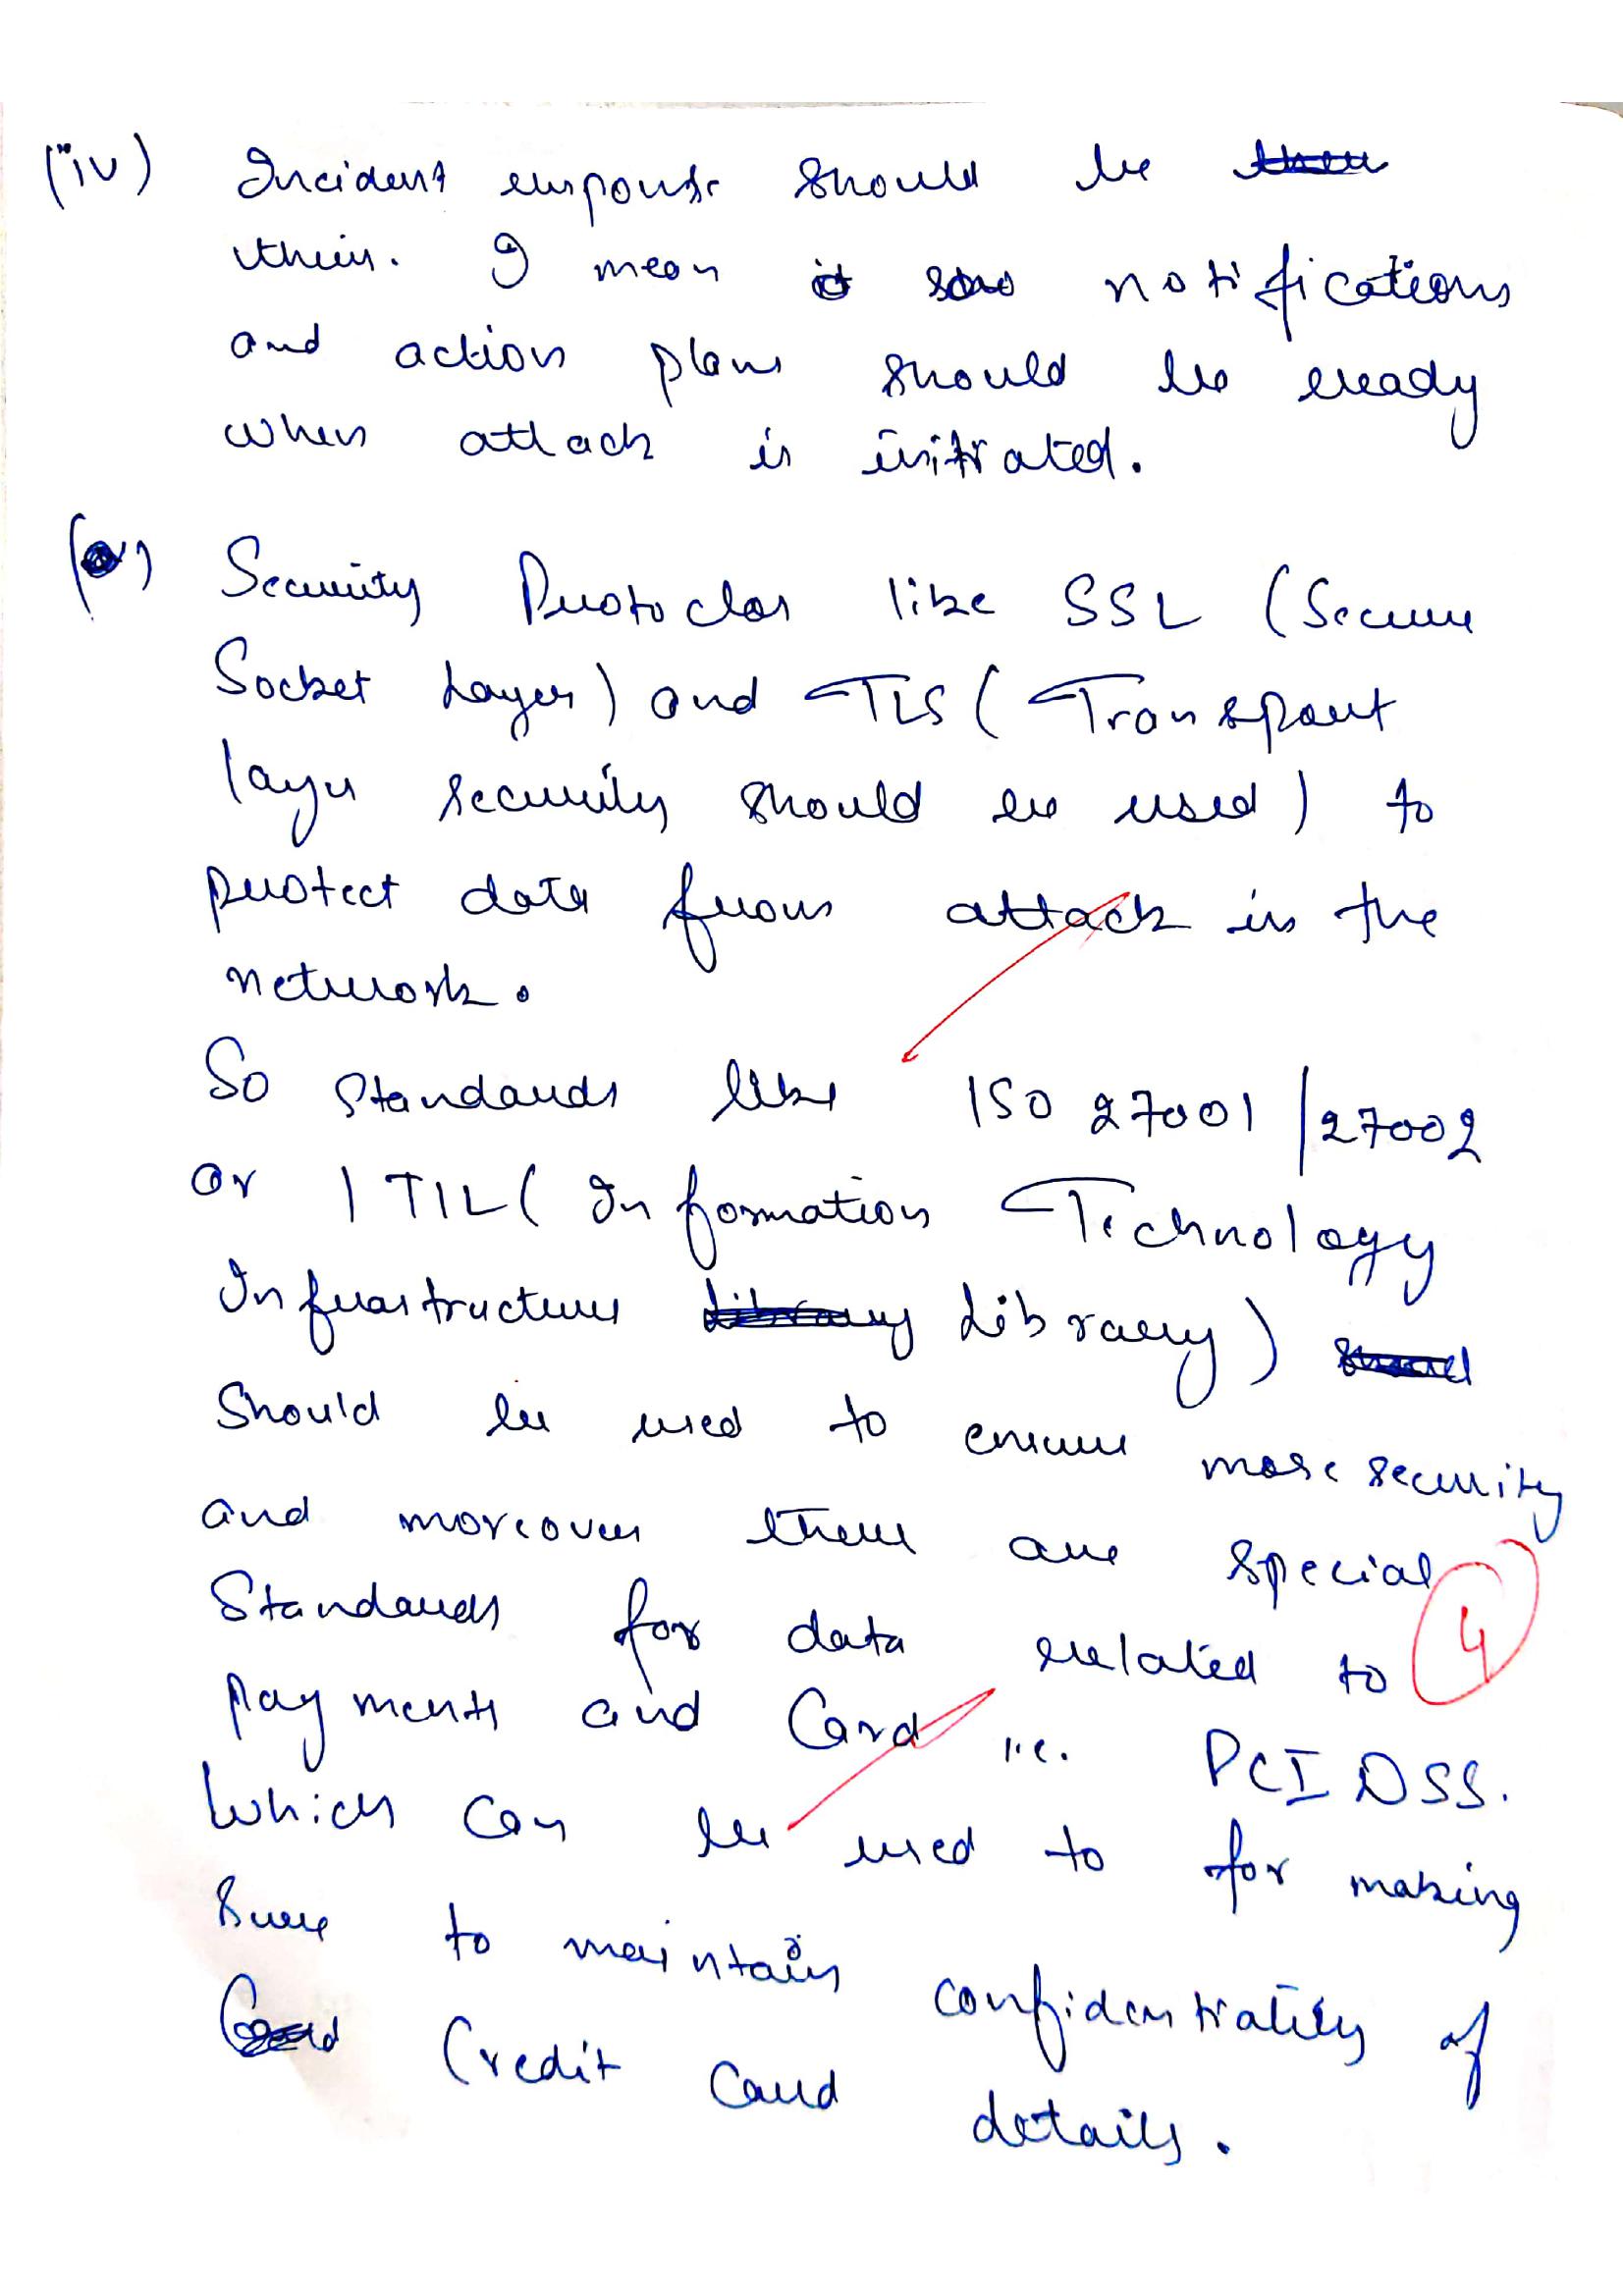 (iv) Incident response should be
there. I mean notifications
and action plans should be ready
when attack is initiated.
(v) Security Protoclos like SSL (Secure
Socket Layer) and TLS (Transport
layer security should be used) to
protect data from attack in the
network.
So standards like ISO 27001/27002
or ITIL (Information Technology
Infrastructure Library)
should be used to ensure more security
and moreover there are special
Standards for data related to
4
payments and Card i.e. PCI DSS.
Which can be used to for making
sure to maintain confidentiality of
Credit Card details.